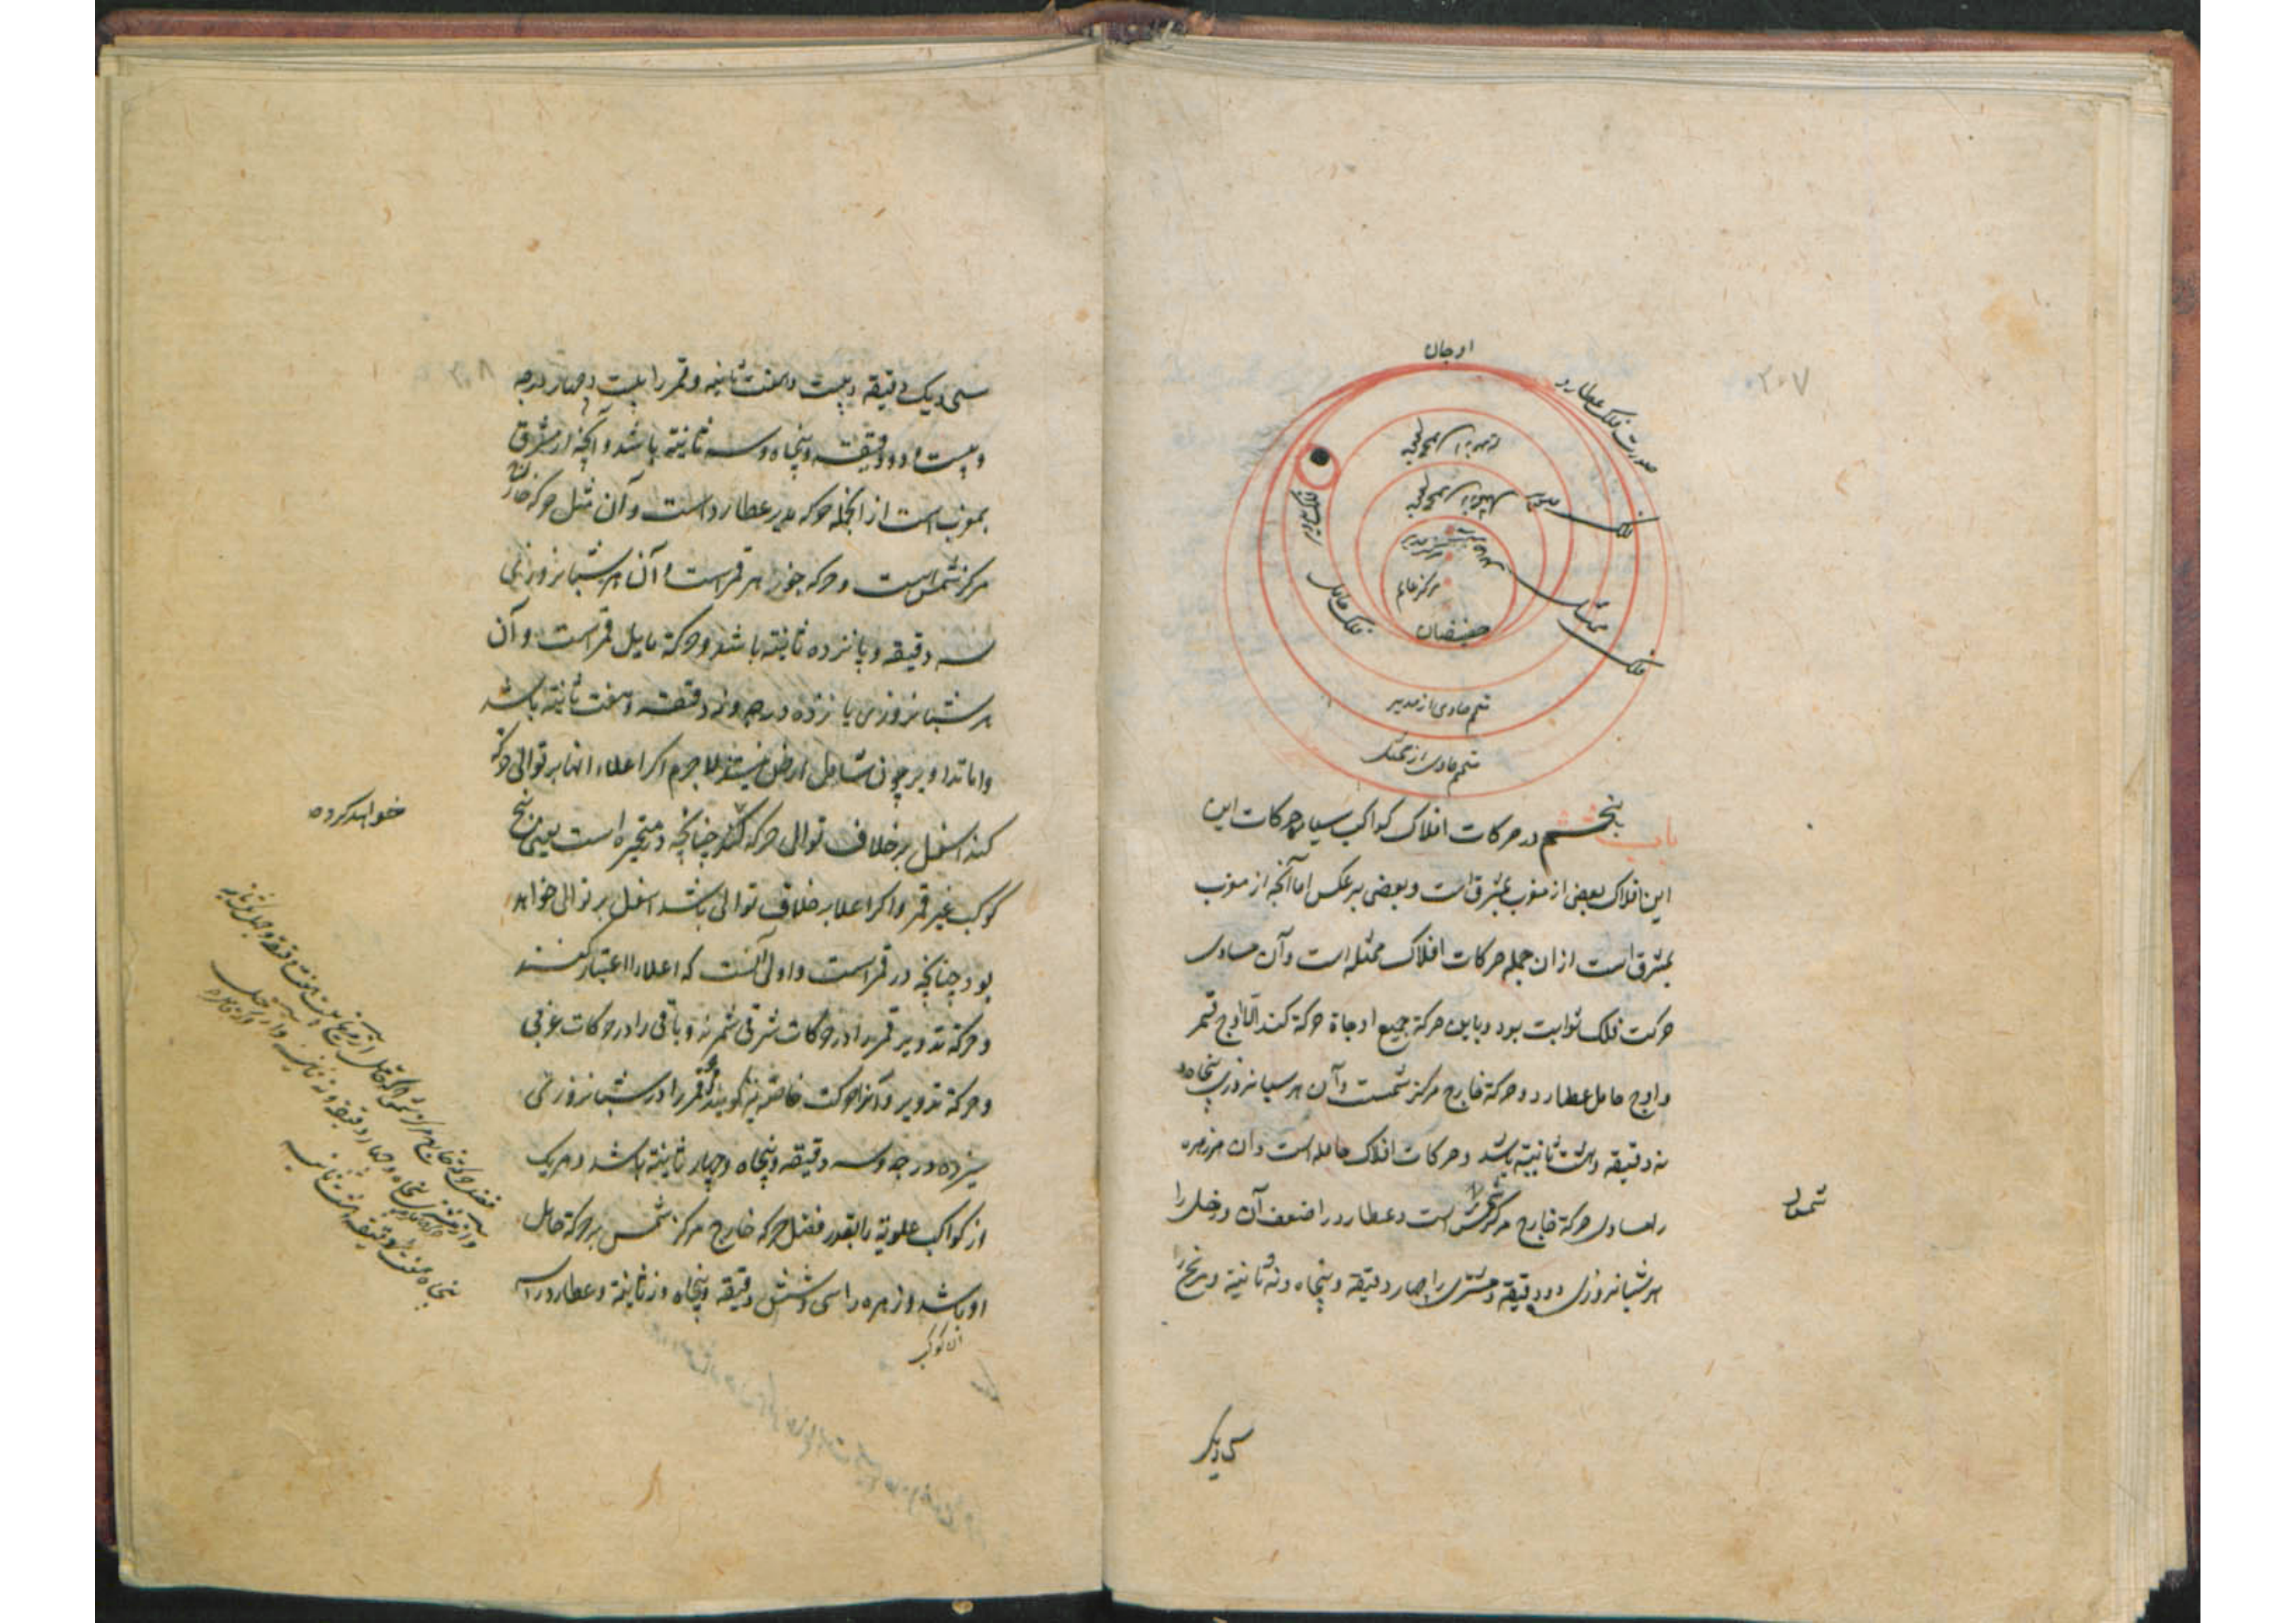 ۲۰۷
اوجان
صورت فلک عطارد
فلک مدیر
فلک ممثل
فلک تدویر
فلک حامل
مرکز عالم
حضیضان
متمم حاوی از مدیر
متمم حاوی از ممثل
باب پنجم در حرکات افلاک کواکب سیاره حرکات این
این افلاک بعضی از مغرب بمشرق است و بعضی برعکس اما آنچه از مغرب
بمشرق است از ان جمله حرکات افلاک ممثله است و آن مساوی
حرکت فلک ثوابت بود و باین حرکة جمیع اوجاة حرکة کنند الا اوج قمر
و اوج حامل عطارد و حرکة خارج مرکز شمست و آن هر شبانروزی پنجاه و
نه دقیقه و هشت ثانیه باشد و حرکات افلاک حامله است و ان مر زهره
را مساوی حرکة خارج مرکز شمس است و عطارد را ضعف آن و زحل را
شمول
هر شبانروزی دو دقیقه و مشتری را چهار دقیقه و پنجاه و نه ثانیة و مریخ را
سی و یک
۲۰۸
سی و یک دقیقه و بیست و هفت ثانیه و قمر را بیست و چهار درجه
و بیست و دو دقیقه و پنجاه و سه ثانیة باشد و آنچه از مشرق
بمغرب است از انجمله حرکه مدیر عطارد است و آن مثل حرکه خارج
مرکز شمس است و حرکه جوزهر قمر است و آن هر شبانروزی
سه دقیقه و پانزده ثانیة باشد و حرکة مایل قمر است و آن
هر شبانروزی یازده درجه و نه دقیقه و هفت ثانیة باشد
و اما تداویر چون شامل ارض نیستند لاجرم اکر اعلاء انها بر توالی حرکة
کند اسفل بر خلاف توالی حرکه کند چنانچه در متحیره است یعنی پنج
خواهد کرد
کوکب غیر قمر و اکر اعلا بر خلاف توالی باشد اسفل بر توالی خواهد
بود چنانچه در قمر است و اولی آنست که اعلا را اعتبار کنند
و حرکة تدویر قمر را در حرکات شرقی شمرند و باقی را در حرکات غربی
و حرکة تدویر و آنرا حرکت خاصه نیز کویند قمر را در شبانروزی
سیزده درجه و سه دقیقه و پنجاه و چهار ثانیة باشد و هر یک
از کواکب علویة را بقدر فضل حرکه خارج مرکز شمس بر حرکة حامل
او باشد و زهره را سی و شش دقیقه و پنجاه و نه ثانیة و عطارد را سه
ان کوکب